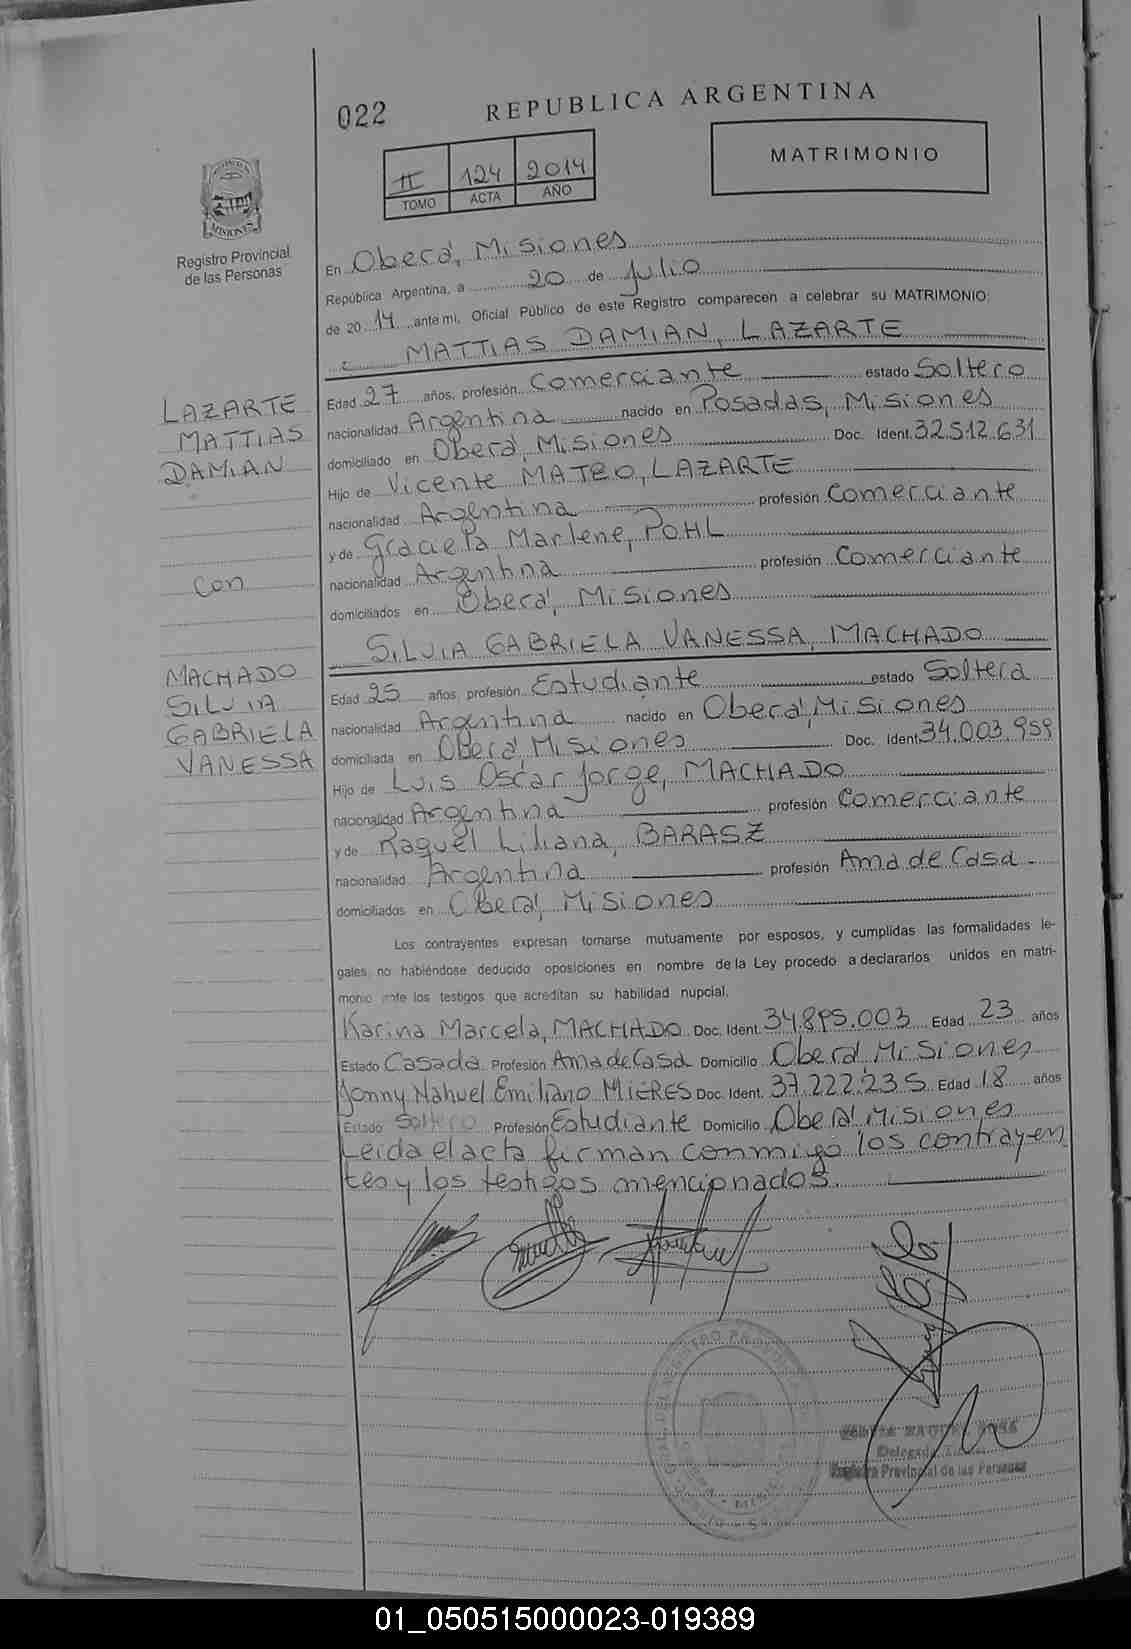 022
REPUBLICA ARGENTINA
II 124 2014
TOMO ACTA AÑO
MATRIMONIO
MISIONES
Registro Provincial
de las Personas
En Oberá, Misiones
República Argentina, a 20 de Julio
de 20 14 ante mi, Oficial Público de este Registro comparecen a celebrar su MATRIMONIO:
MATTIAS DAMIAN, LAZARTE
Edad 27 años, profesión Comerciante estado Soltero
nacionalidad Argentina nacido en Posadas, Misiones
domiciliado en Oberá, Misiones Doc. Ident. 32.512.631
Hijo de Vicente MATEO, LAZARTE
nacionalidad Argentina profesión Comerciante
y de Graciela Marlene, POHL
nacionalidad Argentina profesión Comerciante
domiciliados en Oberá, Misiones
LAZARTE
MATTIAS
DAMIAN
con
MACHADO
SILVIA
GABRIELA
VANESSA
SILVIA GABRIELA VANESSA, MACHADO
Edad 25 años, profesión Estudiante estado Soltera
nacionalidad Argentina nacido en Oberá, Misiones
domiciliada en Oberá Misiones Doc. Ident 34.003.959
Hijo de Luis Oscar Jorge, MACHADO
nacionalidad Argentina profesión Comerciante
y de Raquel Liliana, BARASZ
nacionalidad Argentina profesión Ama de Casa
domiciliados en Oberá, Misiones
Los contrayentes expresan tomarse mutuamente por esposos, y cumplidas las formalidades le-
gales, no habiéndose deducido oposiciones en nombre de la Ley procedo a declararlos unidos en matri-
monio ante los testigos que acreditan su habilidad nupcial.
Karina Marcela, MACHADO Doc. Ident. 34.895.003 Edad 23 años
Estado Casada Profesión Ama de Casa Domicilio Oberá Misiones
Jonny Nahuel Emiliano MIERES Doc. Ident. 37.222.235 Edad 18 años
Estado Soltero Profesión Estudiante Domicilio Oberá Misiones
Leida el acta firman conmigo los contrayen
tes y los testigos mencionados.
Registro Provincial de las Personas
01_050515000023-019389